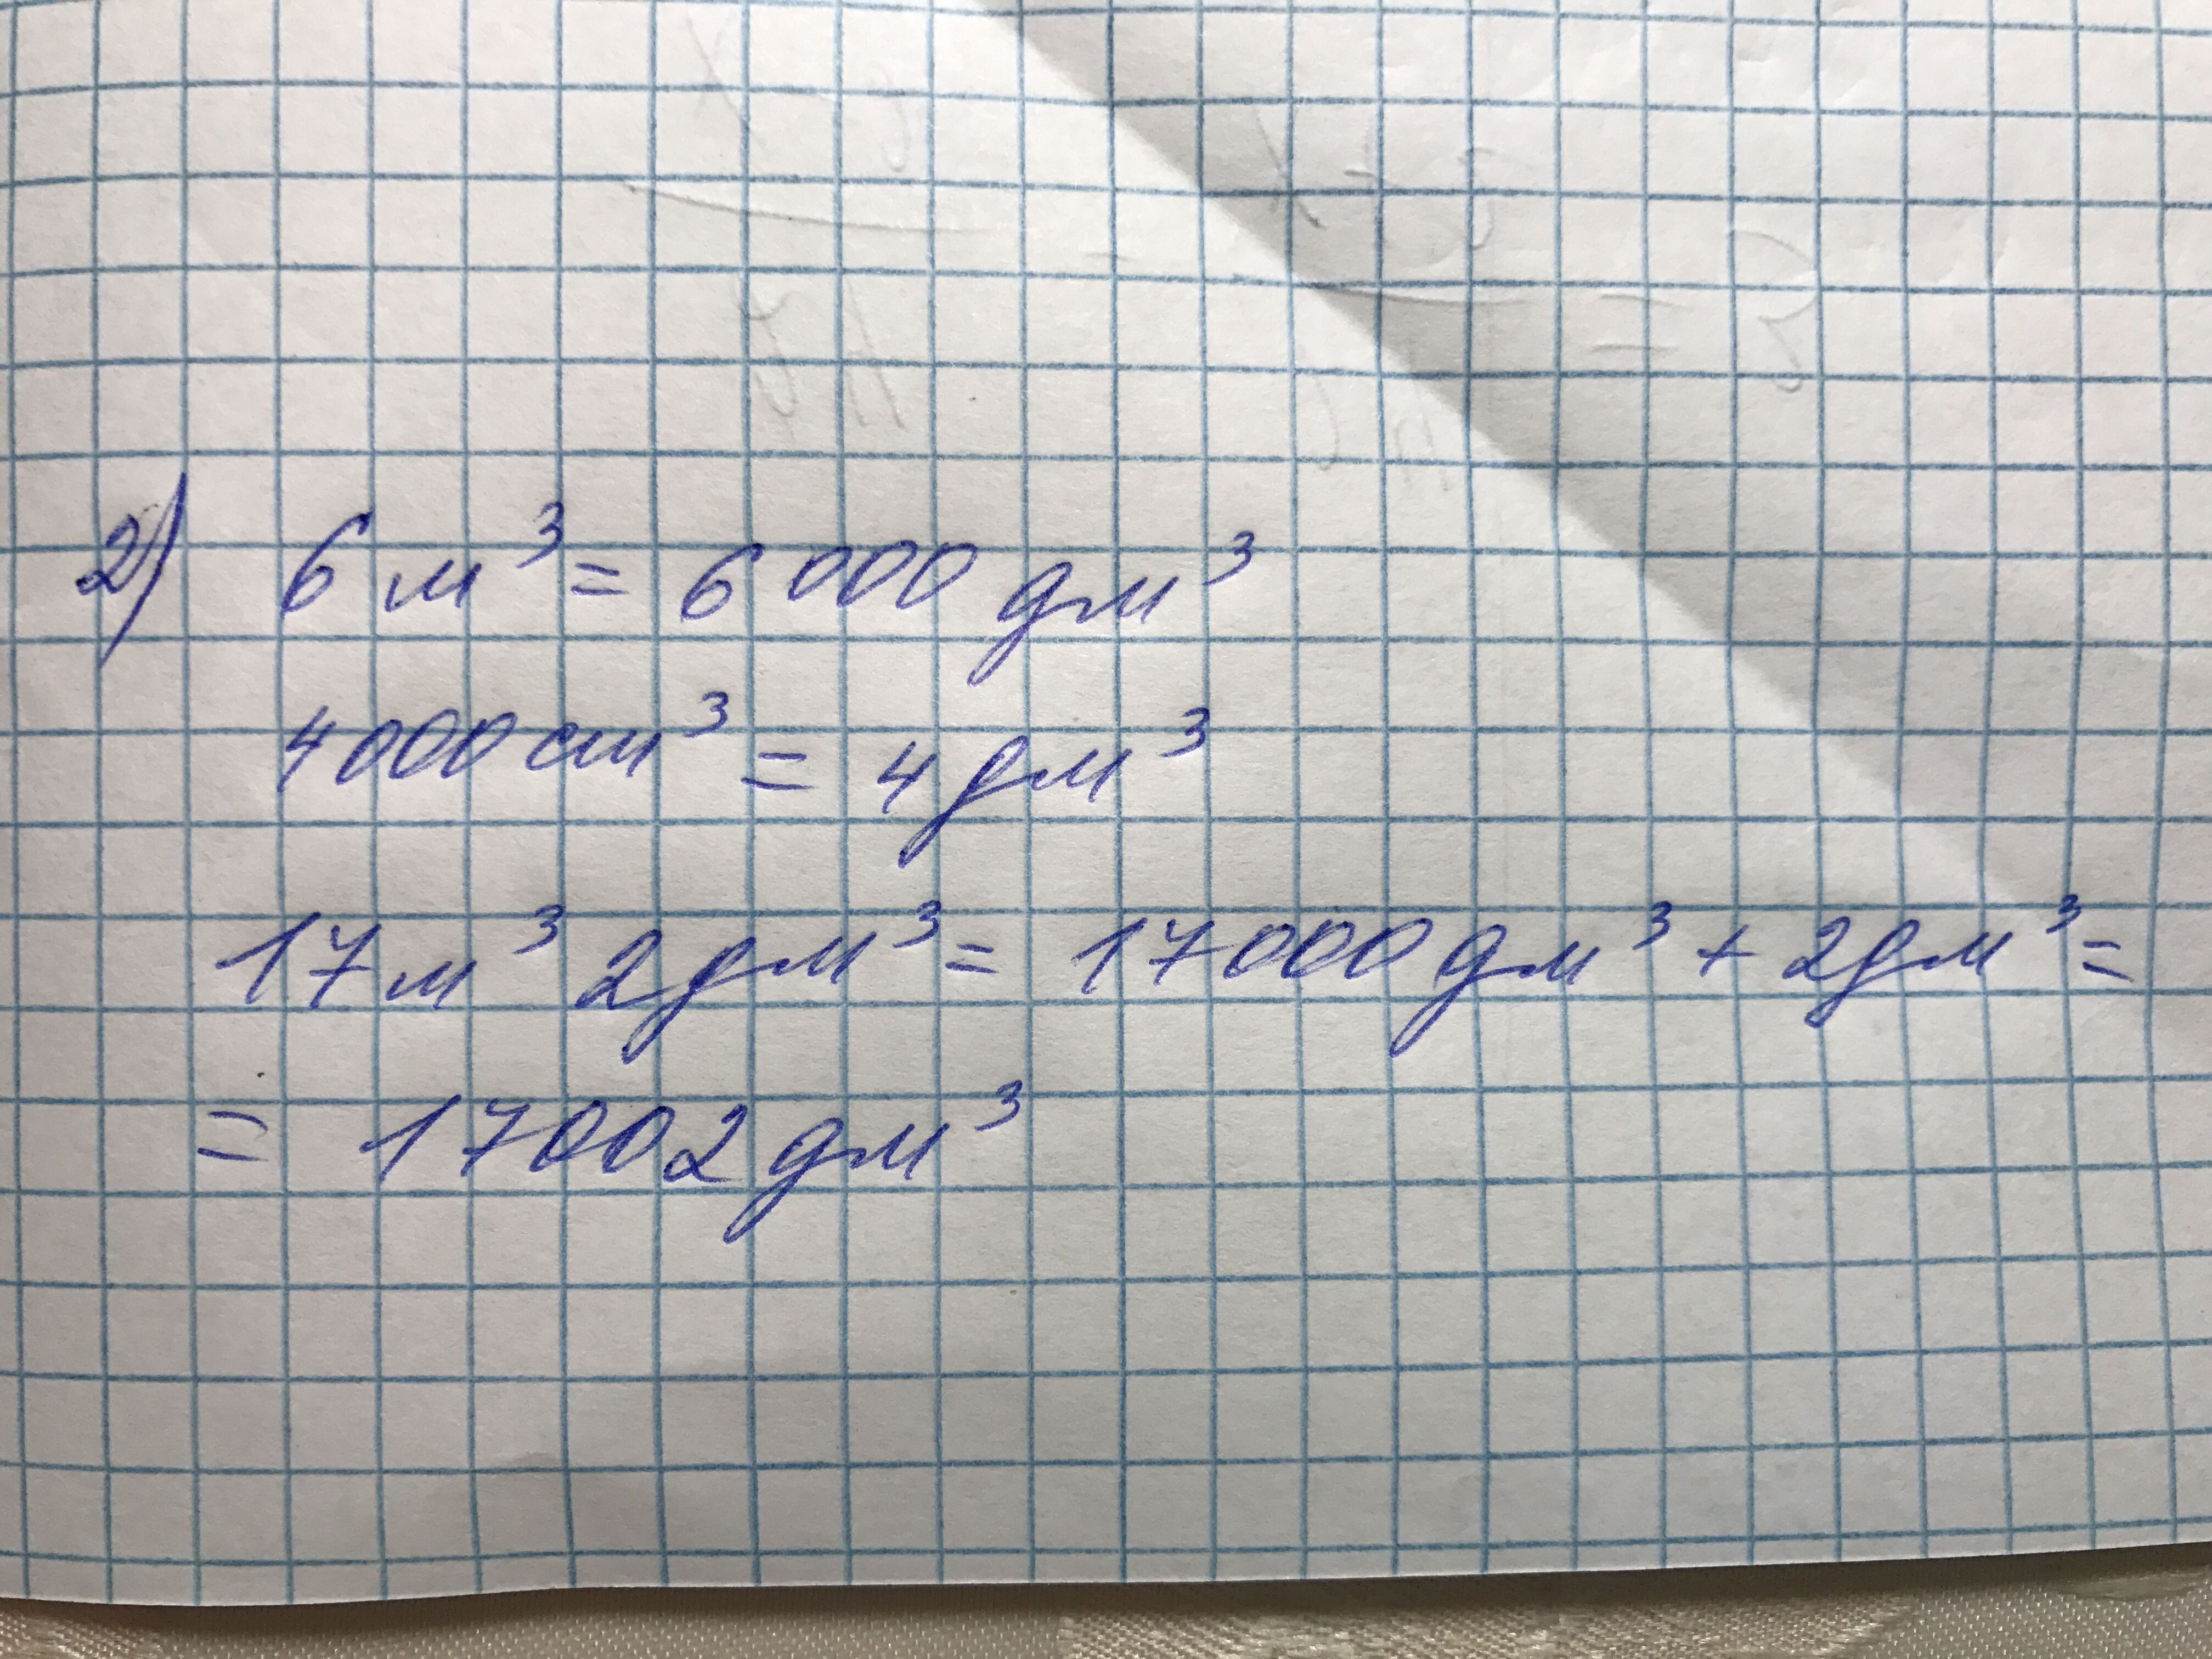 2) 6 м³ = 6000 дм³
4000 см³ = 4 дм³
17 м³ 2 дм³ = 17000 дм³ + 2 дм³ =
= 17002 дм³